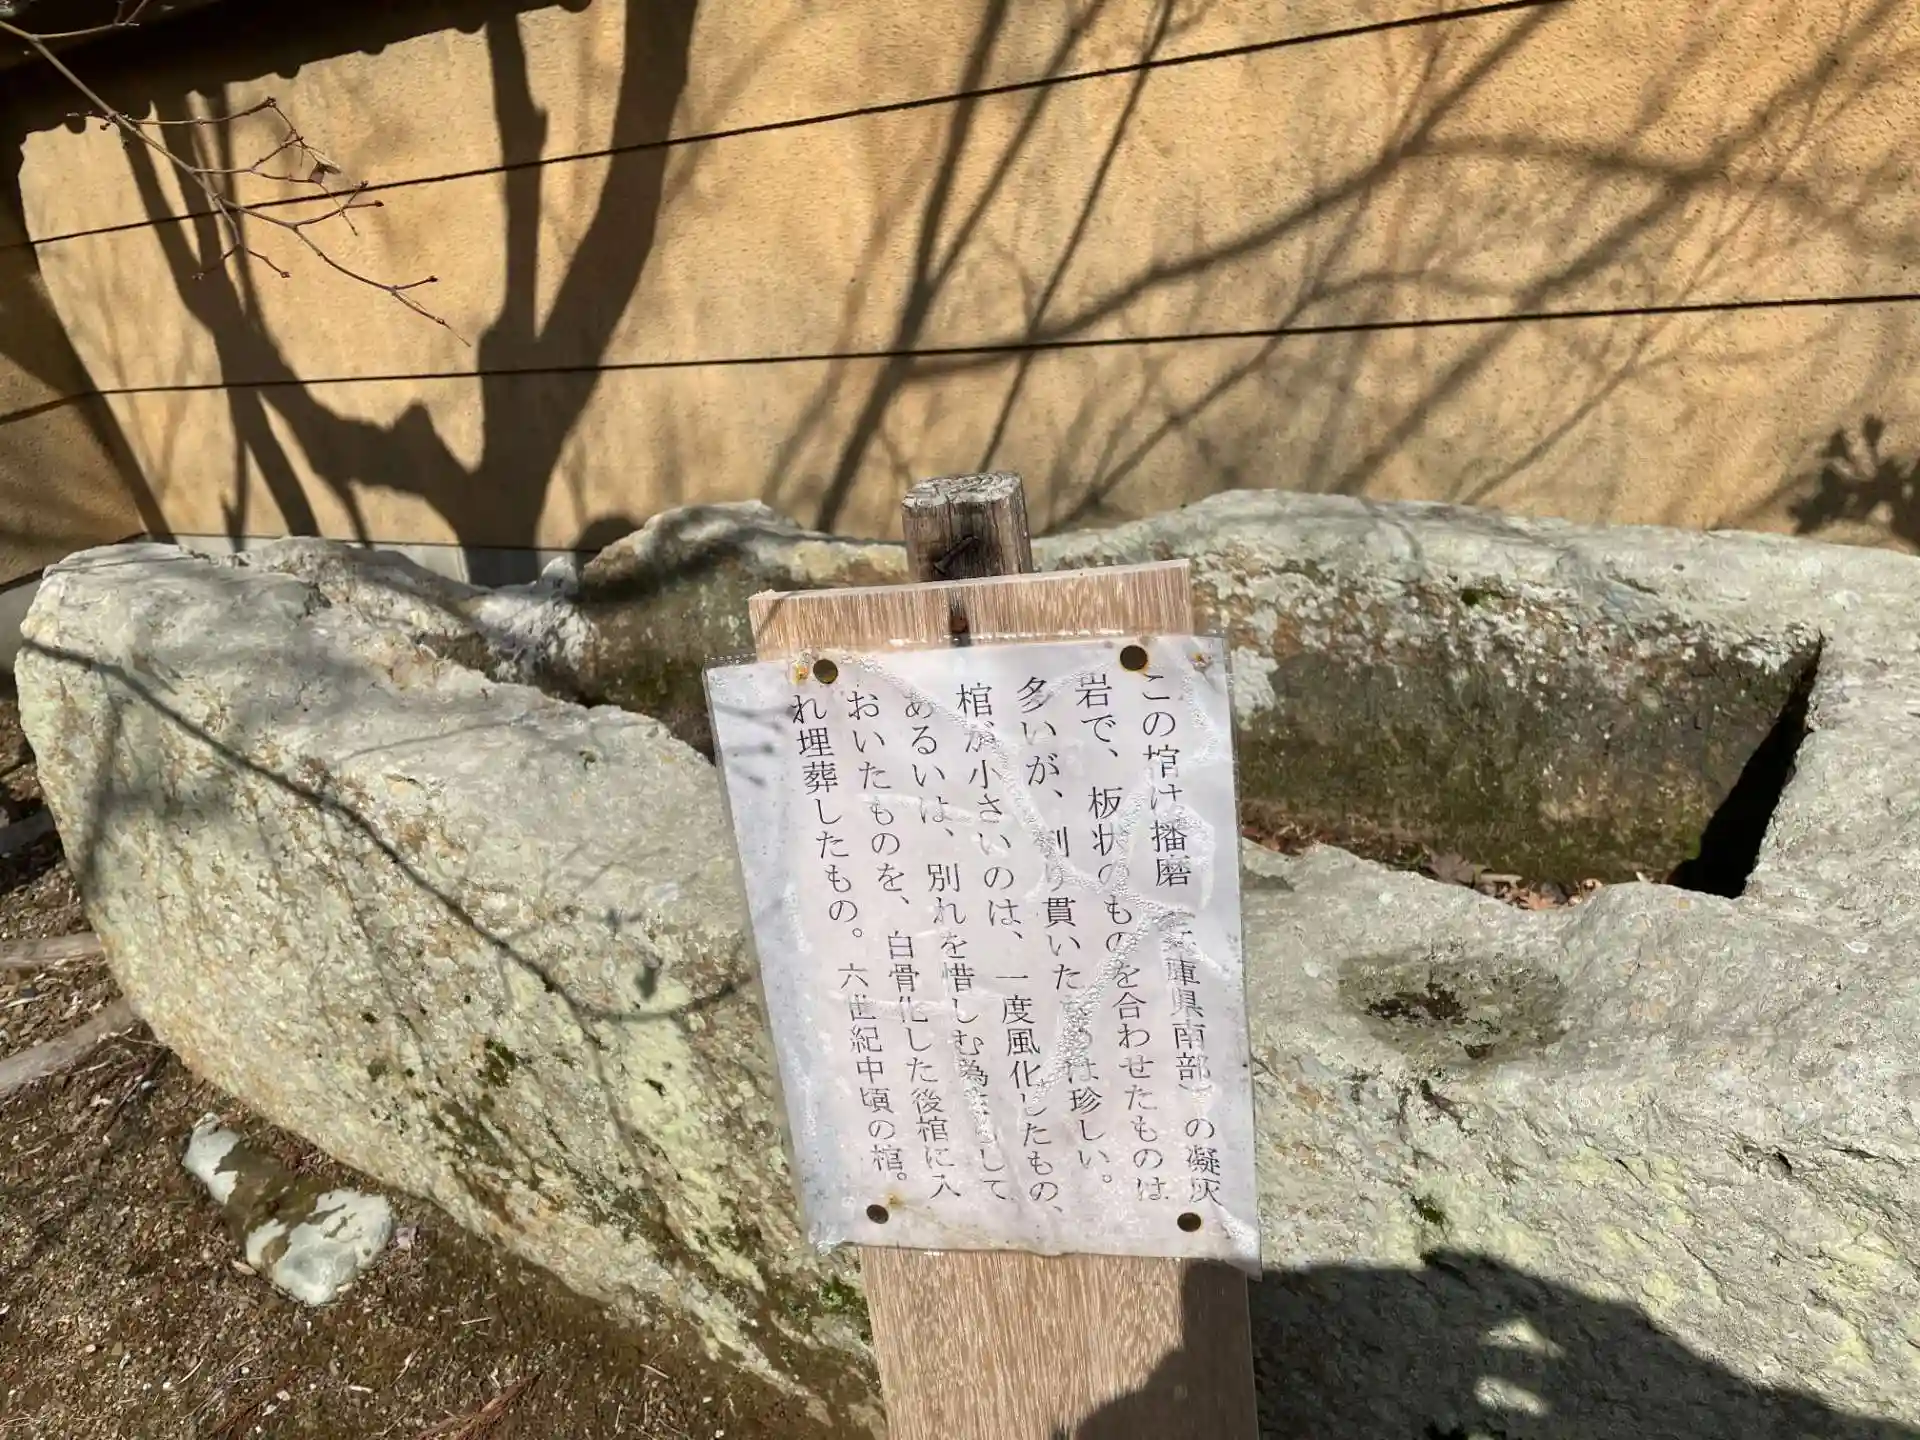 この棺は播磨（兵庫県南部）の凝灰
岩で、板状のものを合わせたものは
多いが、刳り貫いたものは珍しい。
棺が小さいのは、一度風化したもの、
あるいは、別れを惜しむ為 して
おいたものを、白骨化した後棺に入
れ埋葬したもの。六世紀中頃の棺。